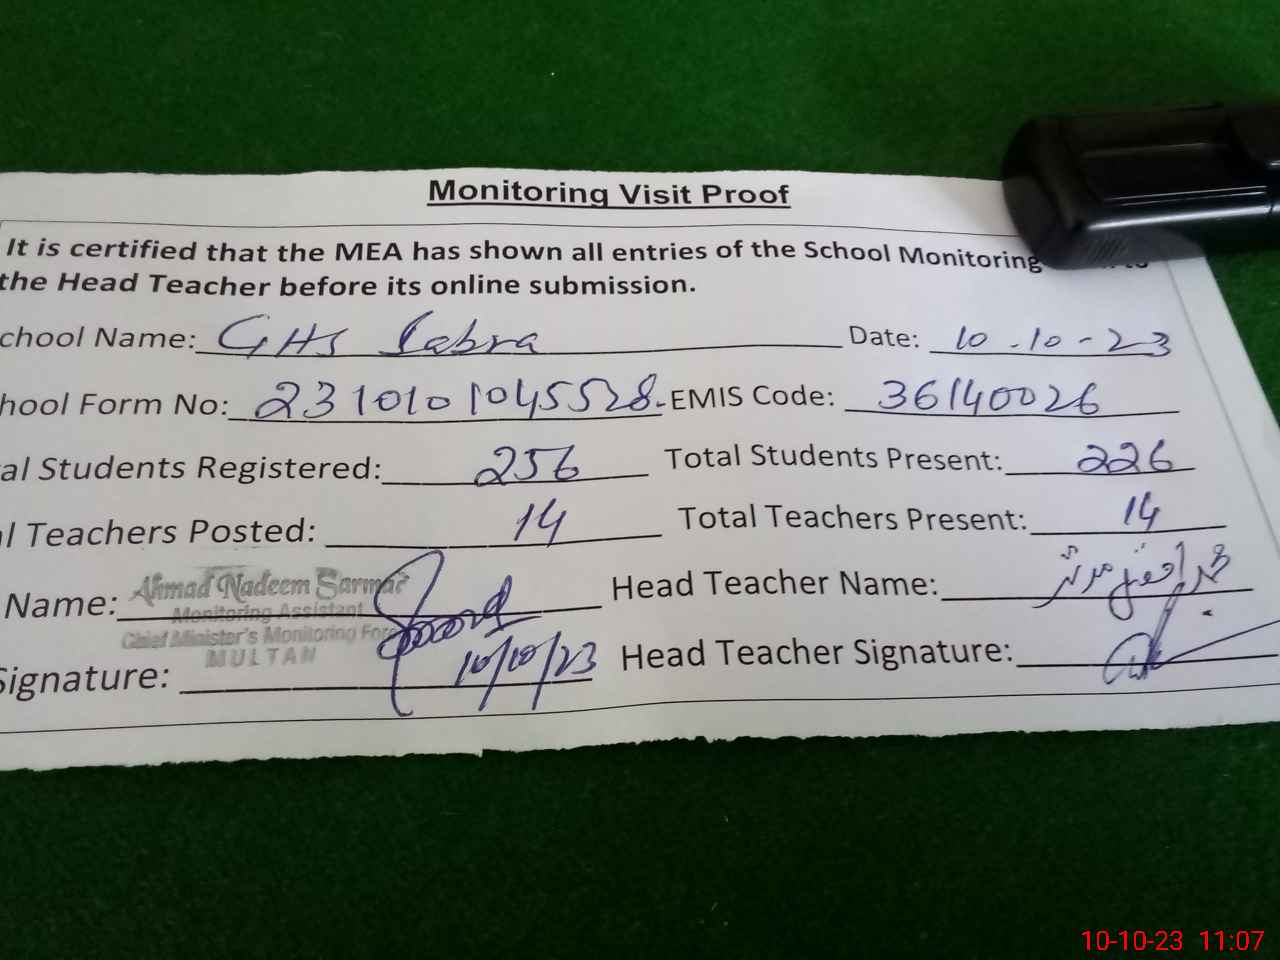 Monitoring Visit Proof
It is certified that the MEA has shown all entries of the School Monitoring to
the Head Teacher before its online submission.
chool Name: GHS Labra Date: 10-10-23
hool Form No: 2310101045528 EMIS Code: 36140026
al Students Registered: 256 Total Students Present: 226
l Teachers Posted: 14 Total Teachers Present: 14
Name: Ahmad Nadeem Sarmad Head Teacher Name:
Monitoring Assistant
Chief Minister's Monitoring Force
MULTAN
Signature: 10/10/23 Head Teacher Signature:
10-10-23 11:07